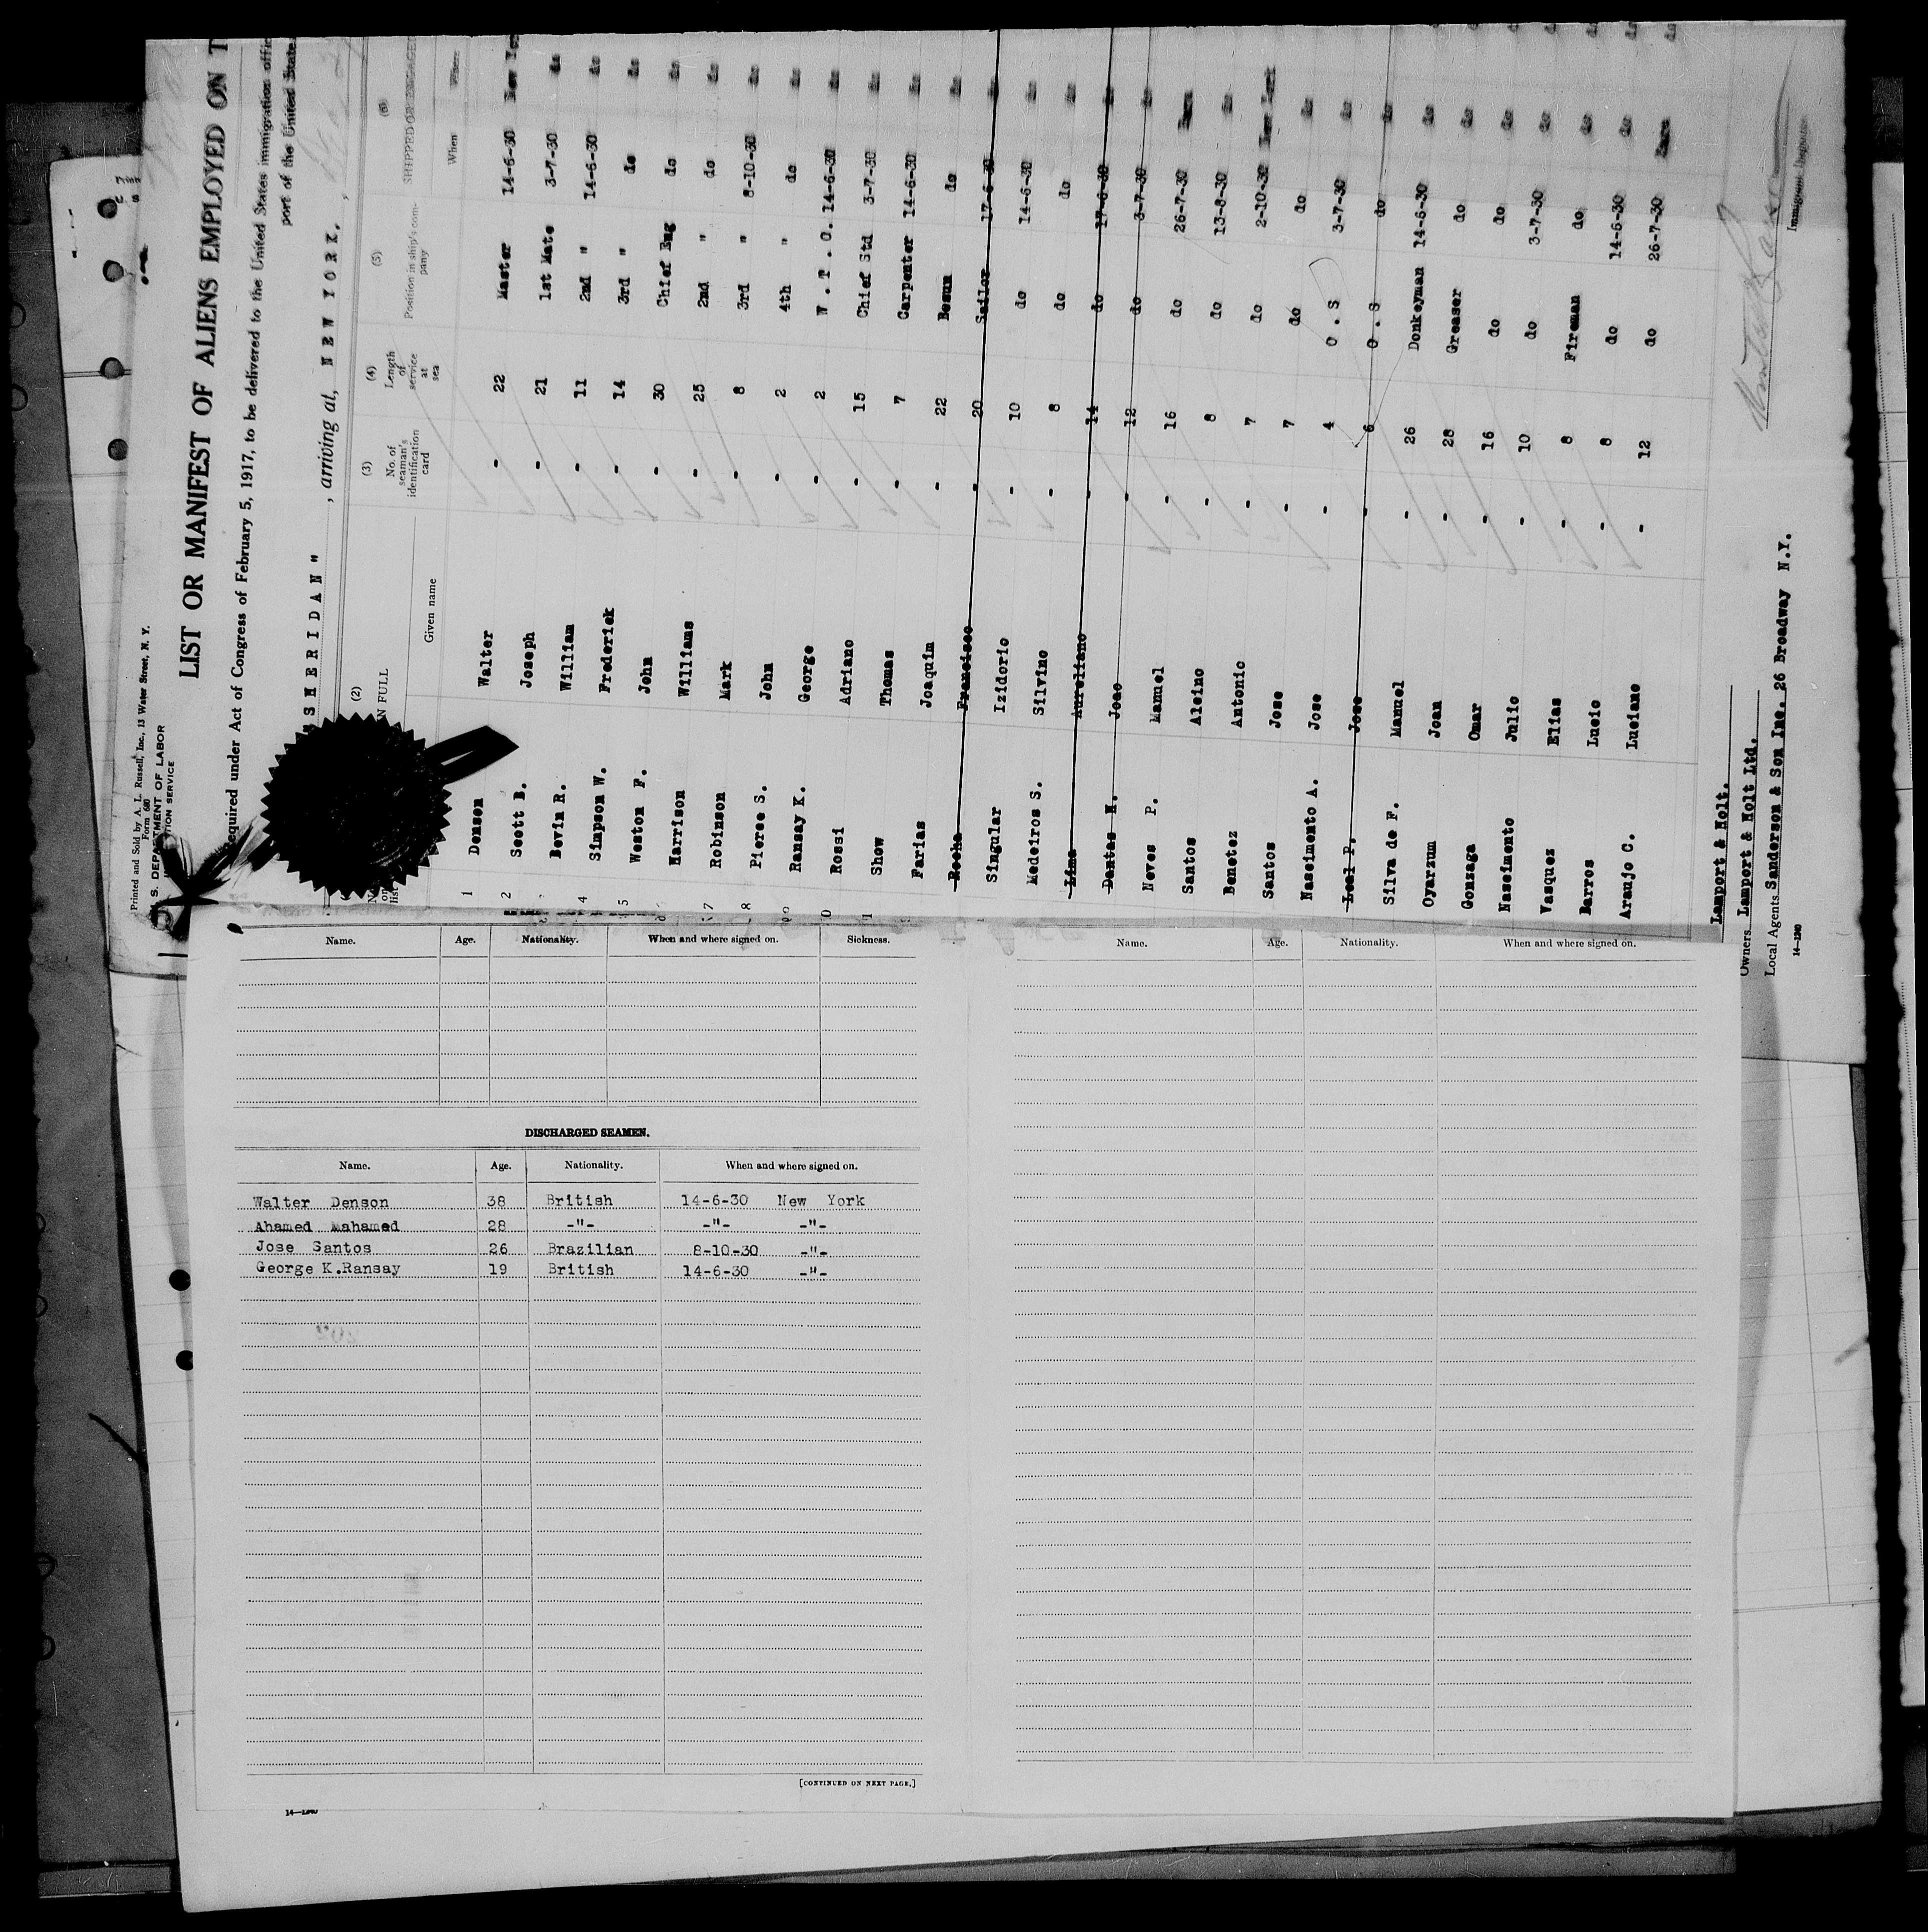 Printed and Sold by A. L. Russell, Inc., 13 Water Street, N. Y.
Form 680
S. DEPARTMENT OF LABOR
TION SERVICE
LIST OR MANIFEST OF ALIENS EMPLOYED ON T
equired under Act of Congress of February 5, 1917, to be delivered to the United States immigration offic
port of the United State
SHERIDAN" , arriving at, NEW YORK. ,
(2) (3) (4) (5) (6)
N FULL No. of seaman's identification card Length of service at sea Position in ship's company SHIPPED OR ENGAGED
Given name When Where
1 Denson Walter - 22 Master 14-6-30 New Yor
2 Scott B. Joseph - 21 1st Mate 3-7-30 do
Bevin R. William - 11 2nd " 14-6-30 do
4 Simpson W. Frederick - 14 3rd " do do
5 Weston F. John - 30 Chief Eng do do
Harrison Williams - 25 2nd " do do
7 Robinson Mark - 8 3rd " 8-10-30 do
8 Pierce S. John - 2 4th " do do
Ransay K. George - 2 W.T.O. 14-6-30 do
Rossi Adriano - 15 Chief Std 3-7-30 do
Show Thomas - 7 Carpenter 14-6-30 do
Farias Joaquim - 22 Bosun do do
Rocha Francisco - 20 Sailor 17-6-30 do
Singular Izidorio - 10 do 14-6-30 do
Medeiros S. Silvino - 8 do do do
Lima Aureliano - 14 do 17-6-30 do
Dantas H. Joao - 12 do 3-7-30 do
Neves P. Manuel - 16 do 26-7-30
Santos Alcino - 8 do 13-8-30 do
Benetez Antonio - 7 do 2-10-30 New York
Santos Jose - 7 do do do
Nascimento A. Jose - 4 O.S 3-7-30 do
Leal P. Jose - 6 O.S do do
Silva de F. Manuel - 26 Donkeyman 14-6-30 do
Oyarzum Joan - 28 Greaser do do
Gonzaga Omar - 16 do do do
Nascimento Julio - 10 do 3-7-30 do
Vasquez Elias - 8 Fireman do do
Barros Lucio - 8 do 14-6-30 do
Araujo C. Luciano - 12 do 26-7-30
Lamport & Holt.
Owners Lamport & Holt Ltd.
Local Agents Sanderson & Son Inc. 26 Broadway N.Y.
14—1240
Immigrant Inspec
Name. Age. Nationality. When and where signed on. Sickness.
DISCHARGED SEAMEN.
Name. Age. Nationality. When and where signed on.
Walter Denson 38 British 14-6-30 New York
Ahamed Mahamed 28 -"- -"- -"-
Jose Santos 26 Brazilian 8-10-30 -"-
George K.Ransay 19 British 14-6-30 -"-
[CONTINUED ON NEXT PAGE.]
14—1240
Name. Age. Nationality. When and where signed on.